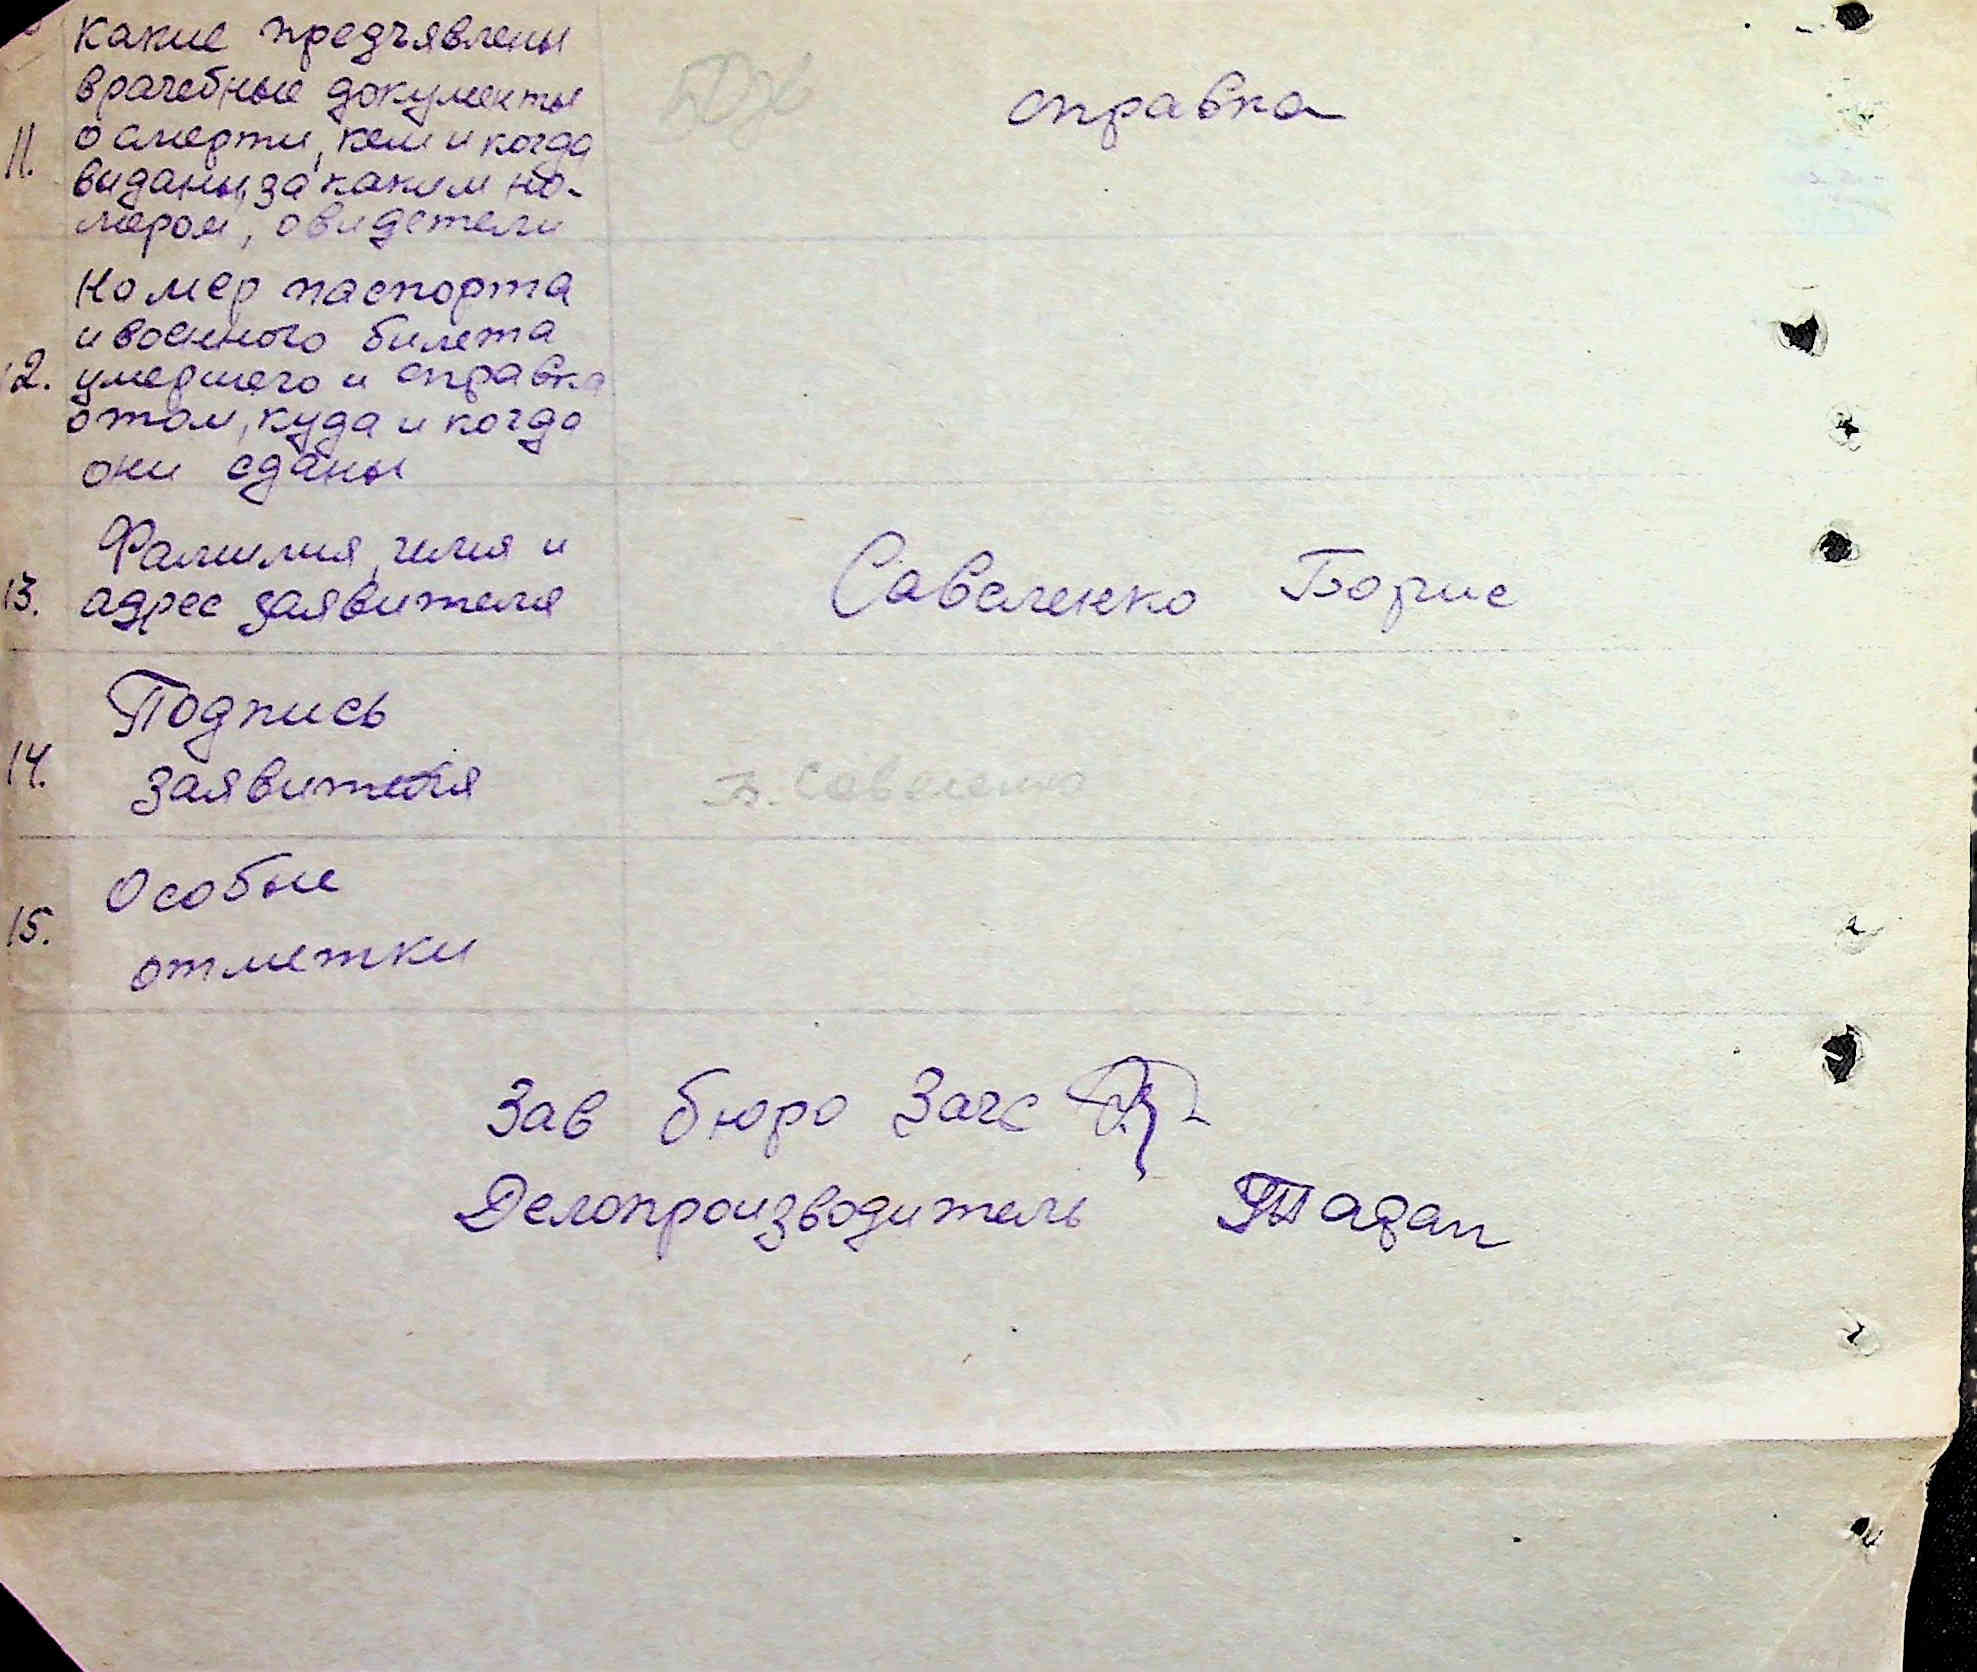 Какие предъявлены
врачебные документы
11. о смерти, кем и когда
виданы, за каким но-
мером, свидетели
справка
Номер паспорта
и военного билета
12. умершего и справка
о том, куда и когда
они сданы
Фамилия, имя и
13. адрес заявителя
Савеленко Борис
Подпись
14. заявителя
Б. Савеленко
Особые
15. отметки
Зав бюро Загс
Делопроизводитель